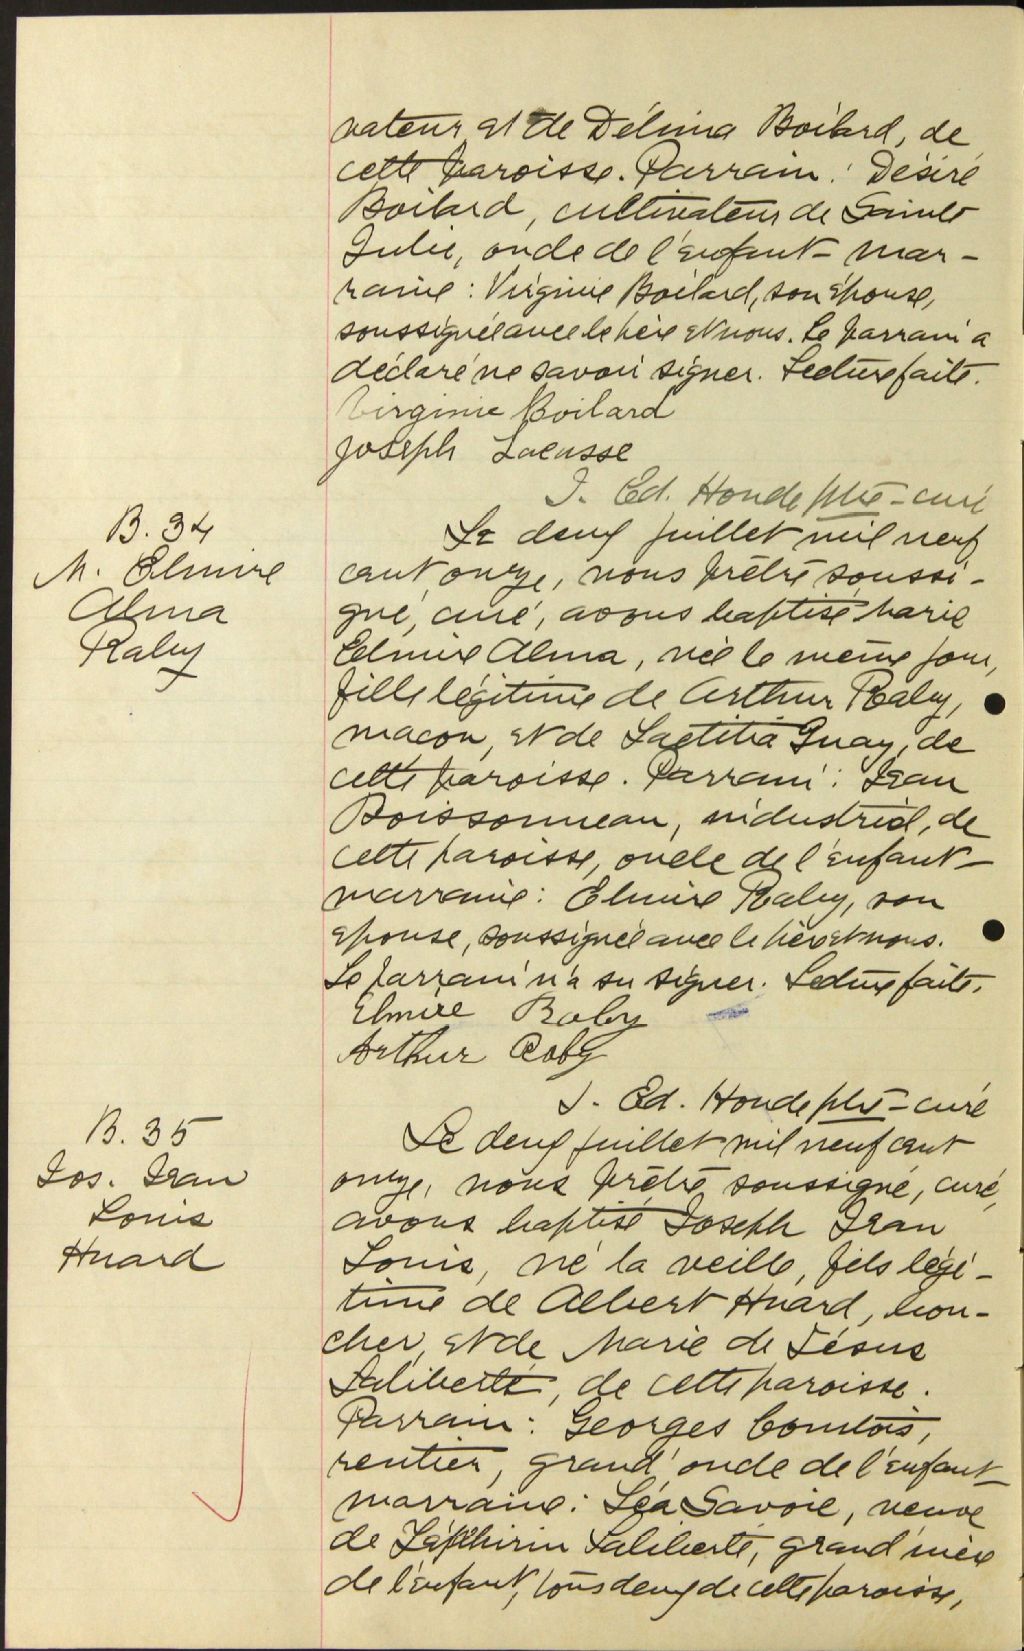 vateur, et de Délima Boilard, de
cette paroisse. Parrain: Désiré
Boilard, cultivateur de Sainte
Julie, oncle de l'enfant - mar-
raine: Virginie Boilard, son épouse,
soussignée avec le père et nous. Le parrain a
déclaré ne savoir signer. Lecture faite.
Virginie Boilard
Joseph Lacasse
J. Ed. Houde ptre - curé
B. 34
M. Elmire
Alma
Raby
Le deux juillet mil neuf
cent onze, nous prêtre soussi-
gné, curé, avons baptisé Marie
Elmire Alma, née le même jour,
fille légitime de Arthur Raby,
maçon, et de Laetitia Guay, de
cette paroisse. Parrain: Jean
Boissonneau, industriel, de
cette paroisse, oncle de l'enfant -
marraine: Elmire Raby, son
épouse, soussignée avec le père et nous.
Le parrain n'a su signer. Lecture faite.
Elmire Raby
Arthur Roby
J. Ed. Houde ptre - curé
B. 35
Jos. Jean
Louis
Huard
Le deux juillet mil neuf cent
onze, nous prêtre soussigné, curé,
avons baptisé Joseph Jean
Louis, né la veille, fils légi-
time de Albert Huard, bou-
cher, et de Marie de Jésus
Laliberté, de cette paroisse.
Parrain: Georges Comtois,
rentier, grand'oncle de l'enfant -
marraine: Léa Savoie, veuve
de Zéphirin Laliberté, grand'mère
de l'enfant, tous deux de cette paroisse,